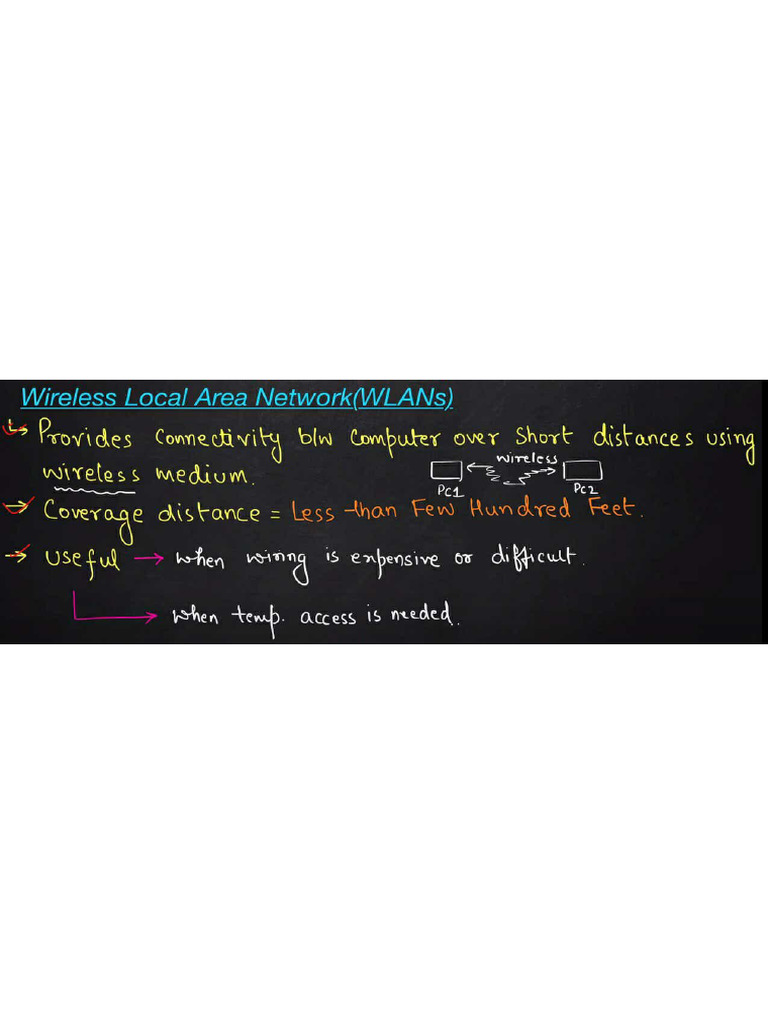 Wireless Local Area Network(WLANs)
Provides Connectivity b/w Computer over Short distances using
wireless medium.
wireless
PC1 PC2
Coverage distance = Less than Few Hundred Feet.
Useful → when wiring is expensive or difficult.
when temp. access is needed.